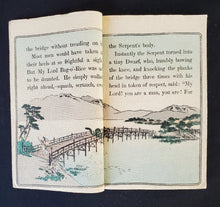 the bridge without treading on
Most men would have taken
their heels at so frightful a sigh
But My Lord Bag-o'-Rice was
to be daunted. He simply walk
right ahead—squash, scrunch,
the Serpent's body.
Instantly the Serpent turned into
a tiny Dwarf, who, humbly bowing
the knee, and knocking the planks
of the bridge three times with his
head in token of respect, said: "My
Lord! you are a man, you are! For